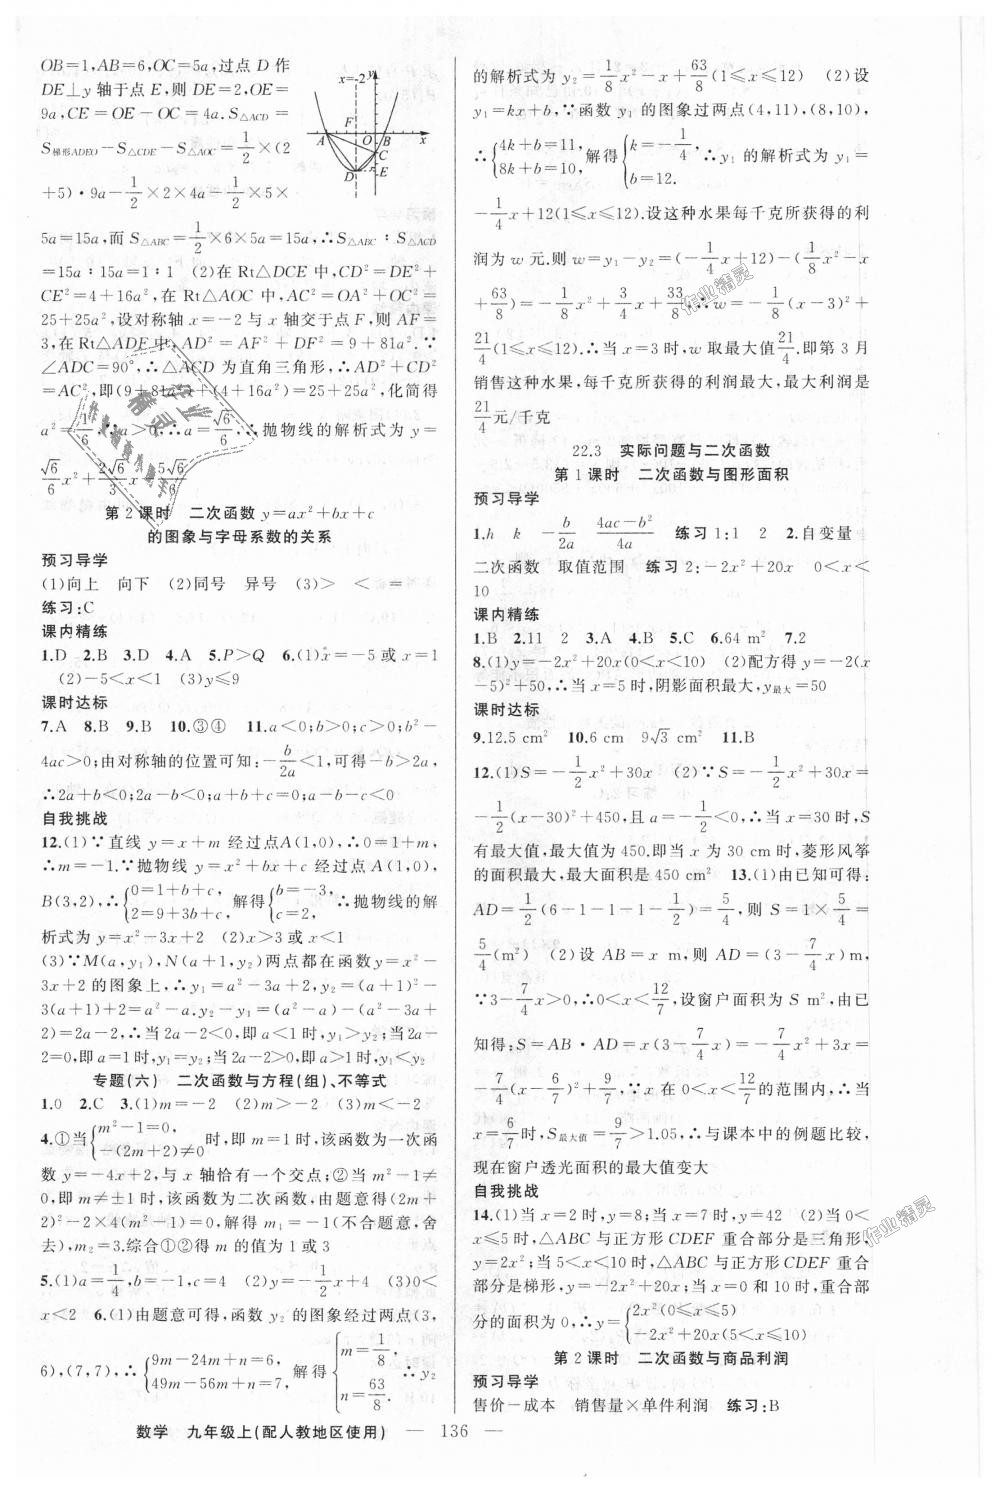 OB=1,AB=6,OC=5a,过点 D 作
DE⊥y 轴于点 E,则 DE=2,OE=
9a,CE=OE-OC=4a.S△ACD=
S梯形ADEO-S△CDE-S△AOC=1/2×(2
+5)·9a-1/2×2×4a-1/2×5×
5a=15a,而 S△ABC=1/2×6×5a=15a,∴S△ABC∶S△ACD
=15a∶15a=1∶1 (2)在 Rt△DCE 中,CD²=DE²+
CE²=4+16a²,在 Rt△AOC 中,AC²=OA²+OC²=
25+25a²,设对称轴 x=-2 与 x 轴交于点 F,则 AF=
3,在 Rt△ADE 中,AD²=AF²+DF²=9+81a².∵
∠ADC=90°,∴△ACD 为直角三角形,∴AD²+CD²
=AC²,即(9+81a²)+(4+16a²)=25+25a²,化简得
a²=1/6.∵a>0,∴a=√6/6,∴抛物线的解析式为 y=
√6/6x²+2√6/3x-5√6/6
x=-2 y F A O B x C D E
第 2 课时 二次函数 y=ax²+bx+c
的图象与字母系数的关系
预习导学
(1)向上 向下 (2)同号 异号 (3)> < =
练习:C
课内精练
1.D 2.B 3.D 4.A 5.P>Q 6.(1)x=-5 或 x=1
(2)-5<x<1 (3)y≤9
课时达标
7.A 8.B 9.B 10.③④ 11.a<0;b>0;c>0;b²-
4ac>0;由对称轴的位置可知:-b/2a<1,可得-b>2a,
∴2a+b<0;2a-b<0;a+b+c=0;a-b-c<0
自我挑战
12.(1)∵直线 y=x+m 经过点A(1,0),∴0=1+m,
∴m=-1.∵抛物线 y=x²+bx+c 经过点 A(1,0),
B(3,2),∴{0=1+b+c, 2=9+3b+c, 解得{b=-3, c=2, ∴抛物线的解
析式为 y=x²-3x+2 (2)x>3 或 x<1
(3)∵M(a,y₁),N(a+1,y₂)两点都在函数 y=x²-
3x+2 的图象上,∴y₁=a²-3a+2,y₂=(a+1)²-
3(a+1)+2=a²-a.y₂-y₁=(a²-a)-(a²-3a+
2)=2a-2,∴当 2a-2<0,即 a<1 时,y₁>y₂;当 2a-
2=0,即 a=1 时,y₁=y₂;当 2a-2>0,即 a>1 时,y₁<y₂
专题(六) 二次函数与方程(组)、不等式
1.0 2.C 3.(1)m=-2 (2)m>-2 (3)m<-2
4.①当{m²-1=0, -(2m+2)≠0时,即 m=1 时,该函数为一次函
数 y=-4x+2,与 x 轴恰有一个交点;②当 m²-1≠
0,即 m≠±1 时,该函数为二次函数,由题意得(2m+
2)²-2×4(m²-1)=0,解得 m₁=-1(不合题意,舍
去),m₂=3.综合①②得 m 的值为 1 或 3
5.(1)a=1/4,b=-1,c=4 (2)y=-1/2x+4 (3)0<
x<2 6.(1)由题意可得,函数 y₂ 的图象经过两点(3,
6),(7,7),∴{9m-24m+n=6, 49m-56m+n=7, 解得{m=1/8, n=63/8. ∴y₂
的解析式为 y₂=1/8x²-x+63/8(1≤x≤12) (2)设
y₁=kx+b,∵函数 y₁ 的图象过两点(4,11),(8,10),
∴{4k+b=11, 8k+b=10, 解得{k=-1/4, b=12. ∴y₁ 的解析式为 y₁=
-1/4x+12(1≤x≤12).设这种水果每千克所获得的利
润为 w 元.则 w=y₁-y₂=(-1/4x+12)-(1/8x²-x
+63/8)=-1/8x²+3/4x+33/8,∴w=-1/8(x-3)²+
21/4(1≤x≤12).∴当 x=3 时,w 取最大值21/4.即第 3 月
销售这种水果,每千克所获得的利润最大,最大利润是
21/4元/千克
22.3 实际问题与二次函数
第 1 课时 二次函数与图形面积
预习导学
1.h k -b/2a 4ac-b²/4a 练习 1:1 2 2.自变量
二次函数 取值范围 练习 2:-2x²+20x 0<x<
10
课内精练
1.B 2.11 2 3.A 4.B 5.C 6.64 m² 7.2
8.(1)y=-2x²+20x(0<x<10) (2)配方得 y=-2(x
-5)²+50,∴当 x=5 时,阴影面积最大,y最大=50
课时达标
9.12.5 cm² 10.6 cm 9√3 cm² 11.B
12.(1)S=-1/2x²+30x (2)∵S=-1/2x²+30x=
-1/2(x-30)²+450,且 a=-1/2<0,∴当 x=30 时,S
有最大值,最大值为 450.即当 x 为 30 cm 时,菱形风筝
的面积最大,最大面积是 450 cm² 13.(1)由已知可得:
AD=1/2(6-1-1-1-1/2)=5/4,则 S=1×5/4=
5/4(m²) (2)设 AB=x m,则 AD=(3-7/4x)m,
∵3-7/4x>0,∴0<x<12/7,设窗户面积为 S m²,由已
知得:S=AB·AD=x(3-7/4x)=-7/4x²+3x=
-7/4(x-6/7)²+9/7,∵x 在 0<x<12/7的范围内,∴当
x=6/7时,S最大值=9/7>1.05,∴与课本中的例题比较,
现在窗户透光面积的最大值变大
自我挑战
14.(1)当 x=2 时,y=8;当 x=7 时,y=42 (2)当 0<
x≤5 时,△ABC 与正方形 CDEF 重合部分是三角形,
y=2x²;当 5<x≤10 时,△ABC 与正方形 CDEF 重合
部分是梯形,y=-2x²+20x;当 x=0 和 10 时,重合部
分的面积为 0,∴y={2x²(0≤x≤5) -2x²+20x(5<x≤10)
第 2 课时 二次函数与商品利润
预习导学
售价-成本 销售量×单件利润 练习:B
数学 九年级上(配人教地区使用) — 136 —
作业精灵
作业精灵